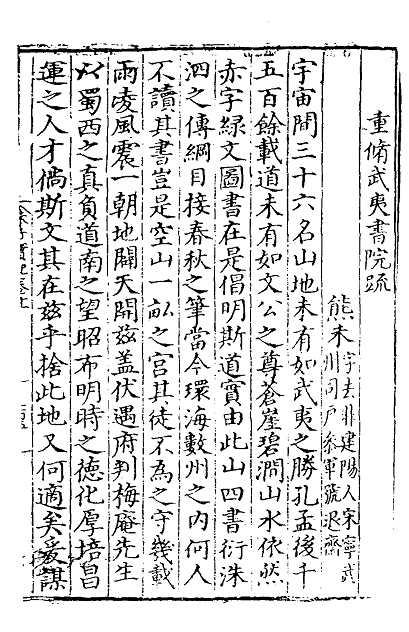 重脩武夷書院疏
熊禾字去非建陽人宋寧武
州司戶參軍號退齋
宇宙間三十六名山地未有如武夷之勝孔孟後千
五百餘載道未有如文公之尊蒼崖碧澗山水依然
赤字緑文圖書在是倡明斯道實由此山四書衍洙
泗之傳綱目接春秋之筆當今環海數州之内何人
不讀其書豈是空山一畝之宫其徒不為之守幾載
雨凌風震一朝地闢天開兹盖伏遇府判梅庵先生
以蜀西之真負道南之望昭布明時之德化厚培昌
運之人才倘斯文其在兹乎捨此地又何適矣爰謀